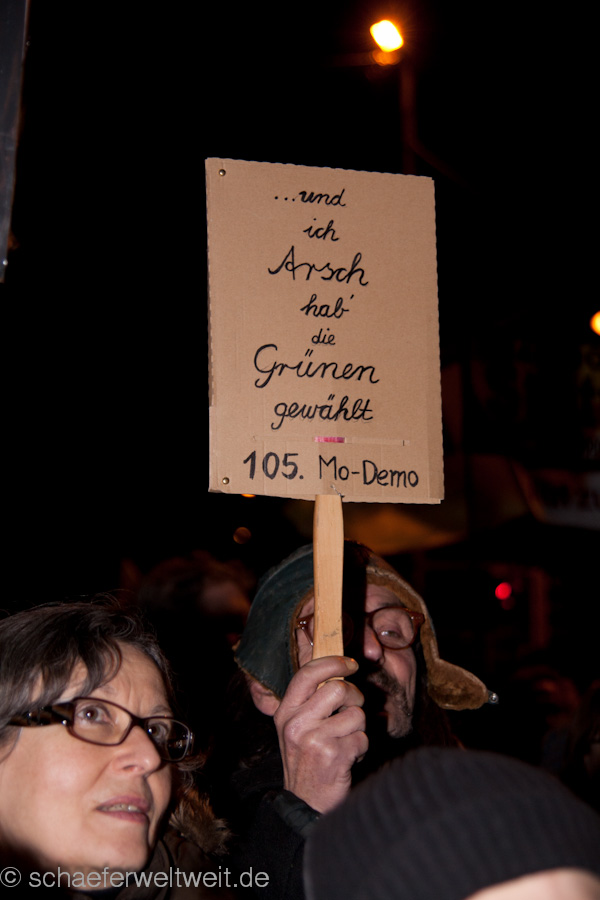 ...und
ich
Arsch
hab'
die
Grünen
gewählt
105. Mo-Demo
© schaeferweltweit.de